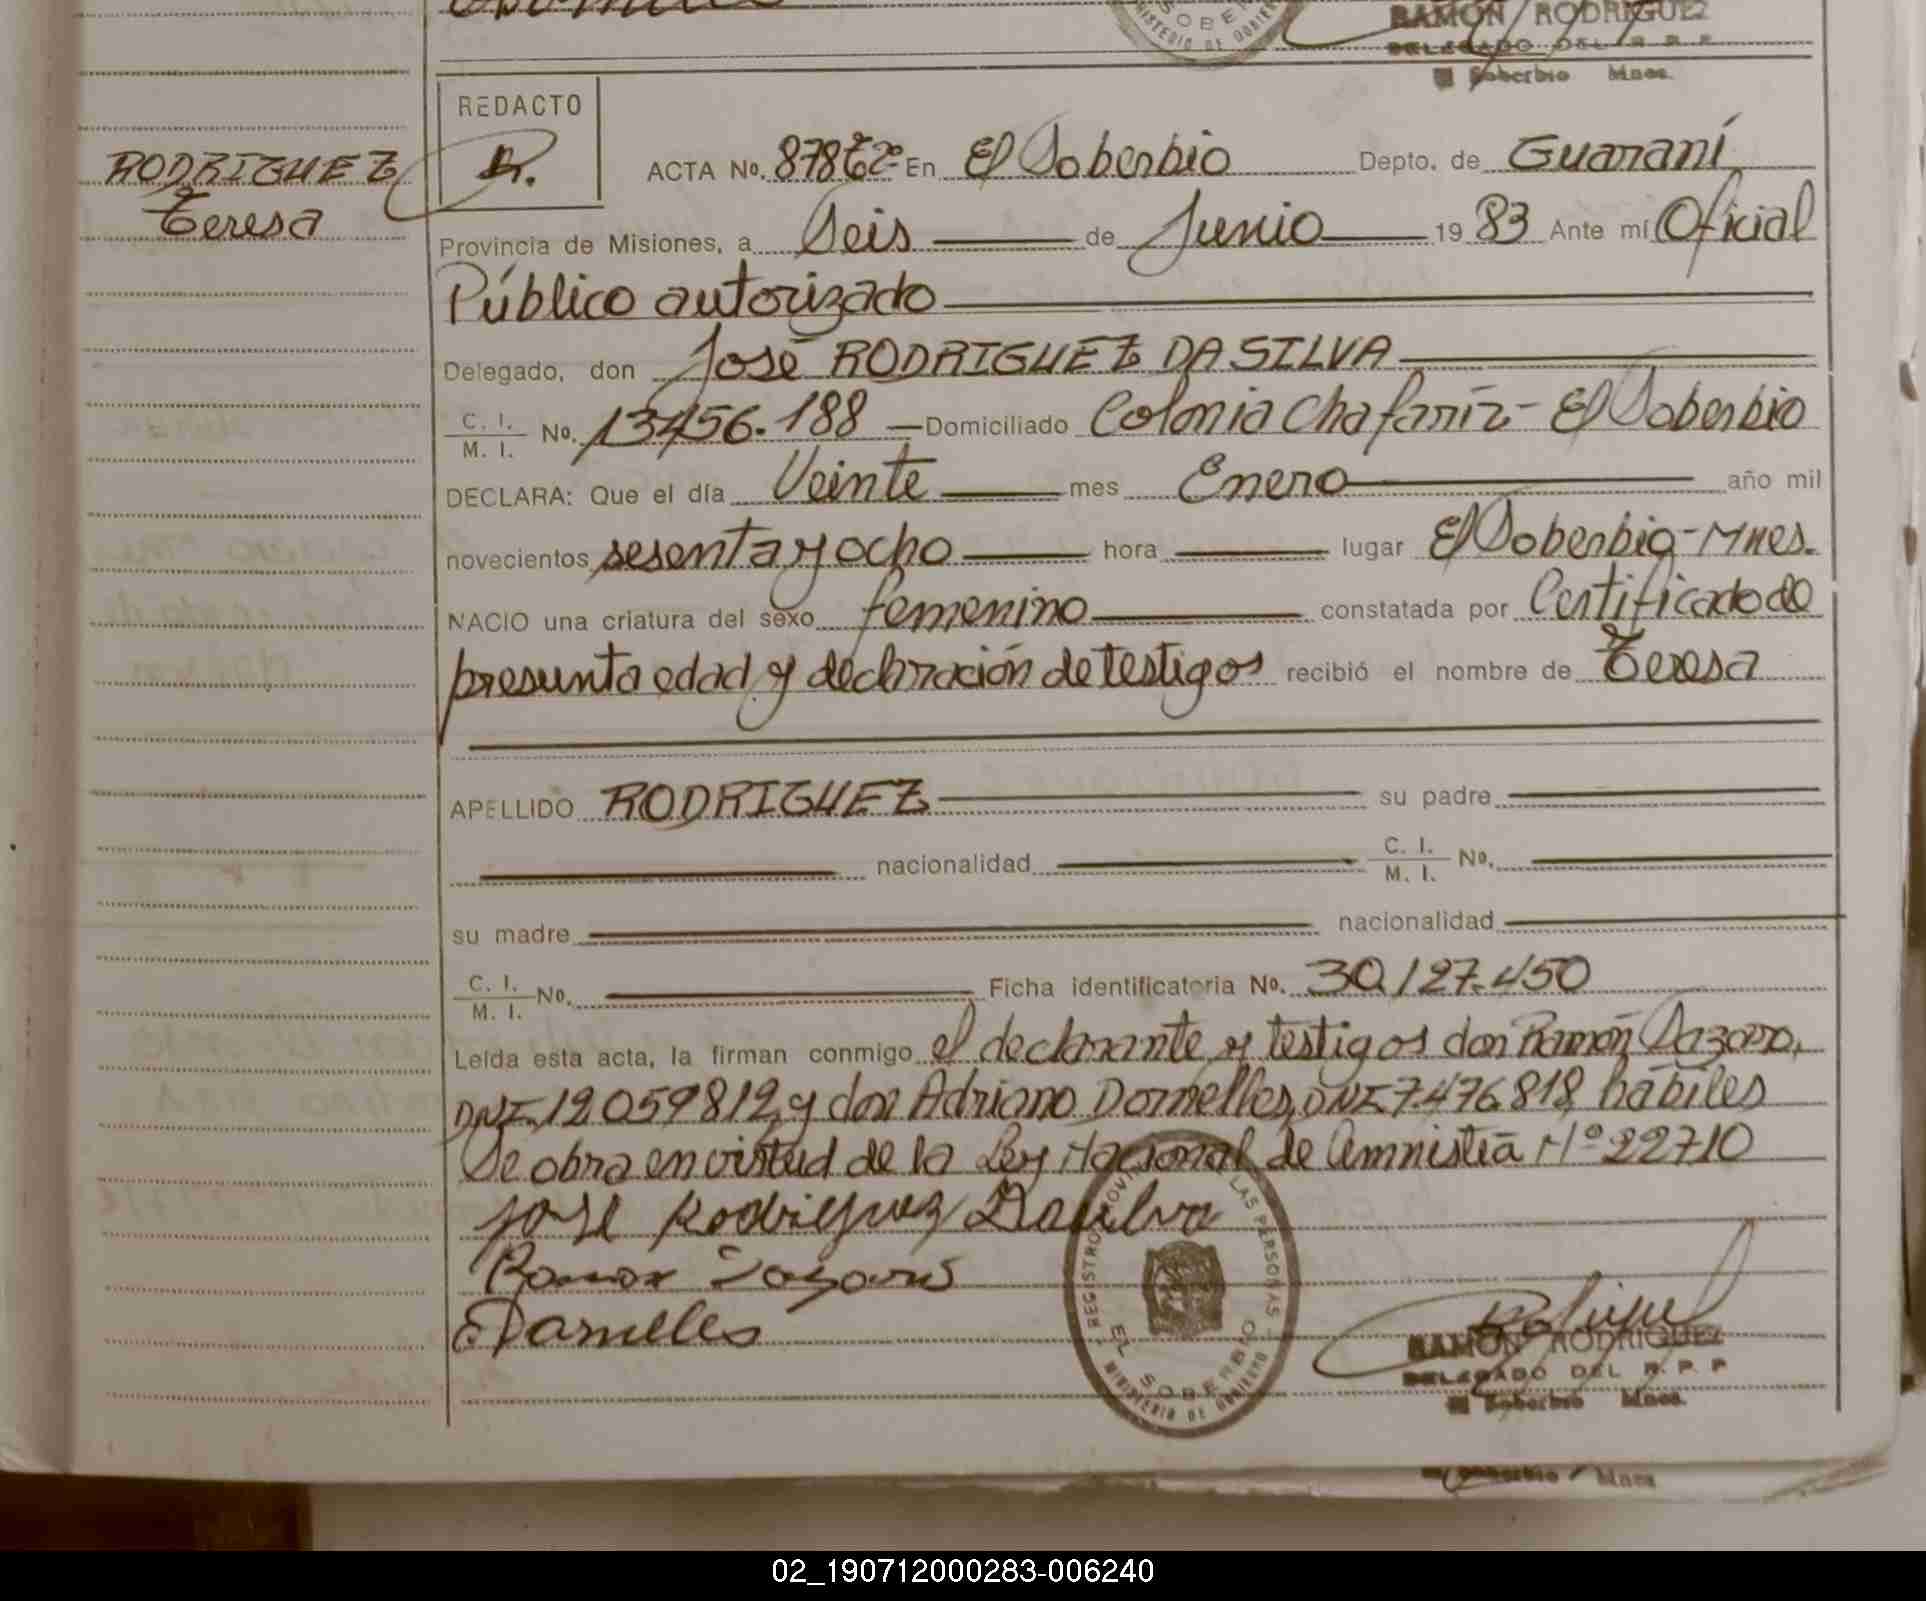 RAMON RODRIGUEZ
DELEGADO DEL R. P. P.
El Soberbio Mnes.
REDACTO
R.
RODRIGUEZ
Teresa
ACTA No. 878 Tº 2º En El Soberbio Depto. de Guaraní
Provincia de Misiones, a Seis de Junio 1983 Ante mí Oficial
Público autorizado
Delegado, don José RODRIGUEZ DA SILVA
C. I.
M. I. No. 13.456.188 Domiciliado Colonia Chafariz - El Soberbio
DECLARA: Que el día Veinte mes Enero año mil
novecientos sesenta y ocho hora lugar El Soberbio - Mnes.
NACIO una criatura del sexo femenino constatada por Certificado de
presunta edad y declaración de testigos recibió el nombre de Teresa
APELLIDO RODRIGUEZ su padre
nacionalidad C. I.
M. I. No.
su madre nacionalidad
C. I.
M. I. No. Ficha identificatoria No. 30.127.450
Leída esta acta, la firman conmigo el declarante y testigos don Ramón Lazaro,
DNI. 12.059812, y don Adriano Dornelles, DNI 7.476.818, hábiles
Se obra en virtud de la Ley Nacional de Amnistía Nº 22710
José Rodriguez Dasilva
Dornelles
REGISTRO PROVINCIAL DE LAS PERSONAS
EL SOBERBIO
MINISTERIO DE GOBIERNO
RAMON RODRIGUEZ
DELEGADO DEL R. P. P
El Soberbio Mnes.
Soberbio Mnes
02_190712000283-006240